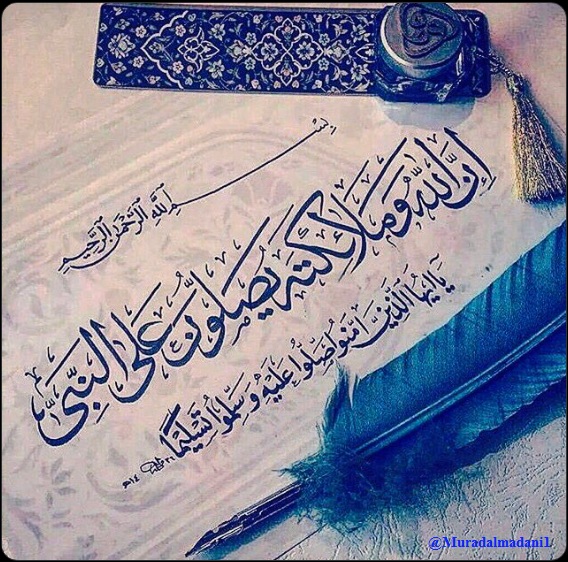 بسم الله الرحمن الرحيم
إن الله وملائكته يصلون على النبي
يا أيها الذين آمنوا صلوا عليه وسلموا تسليما
@Muradalmadani1